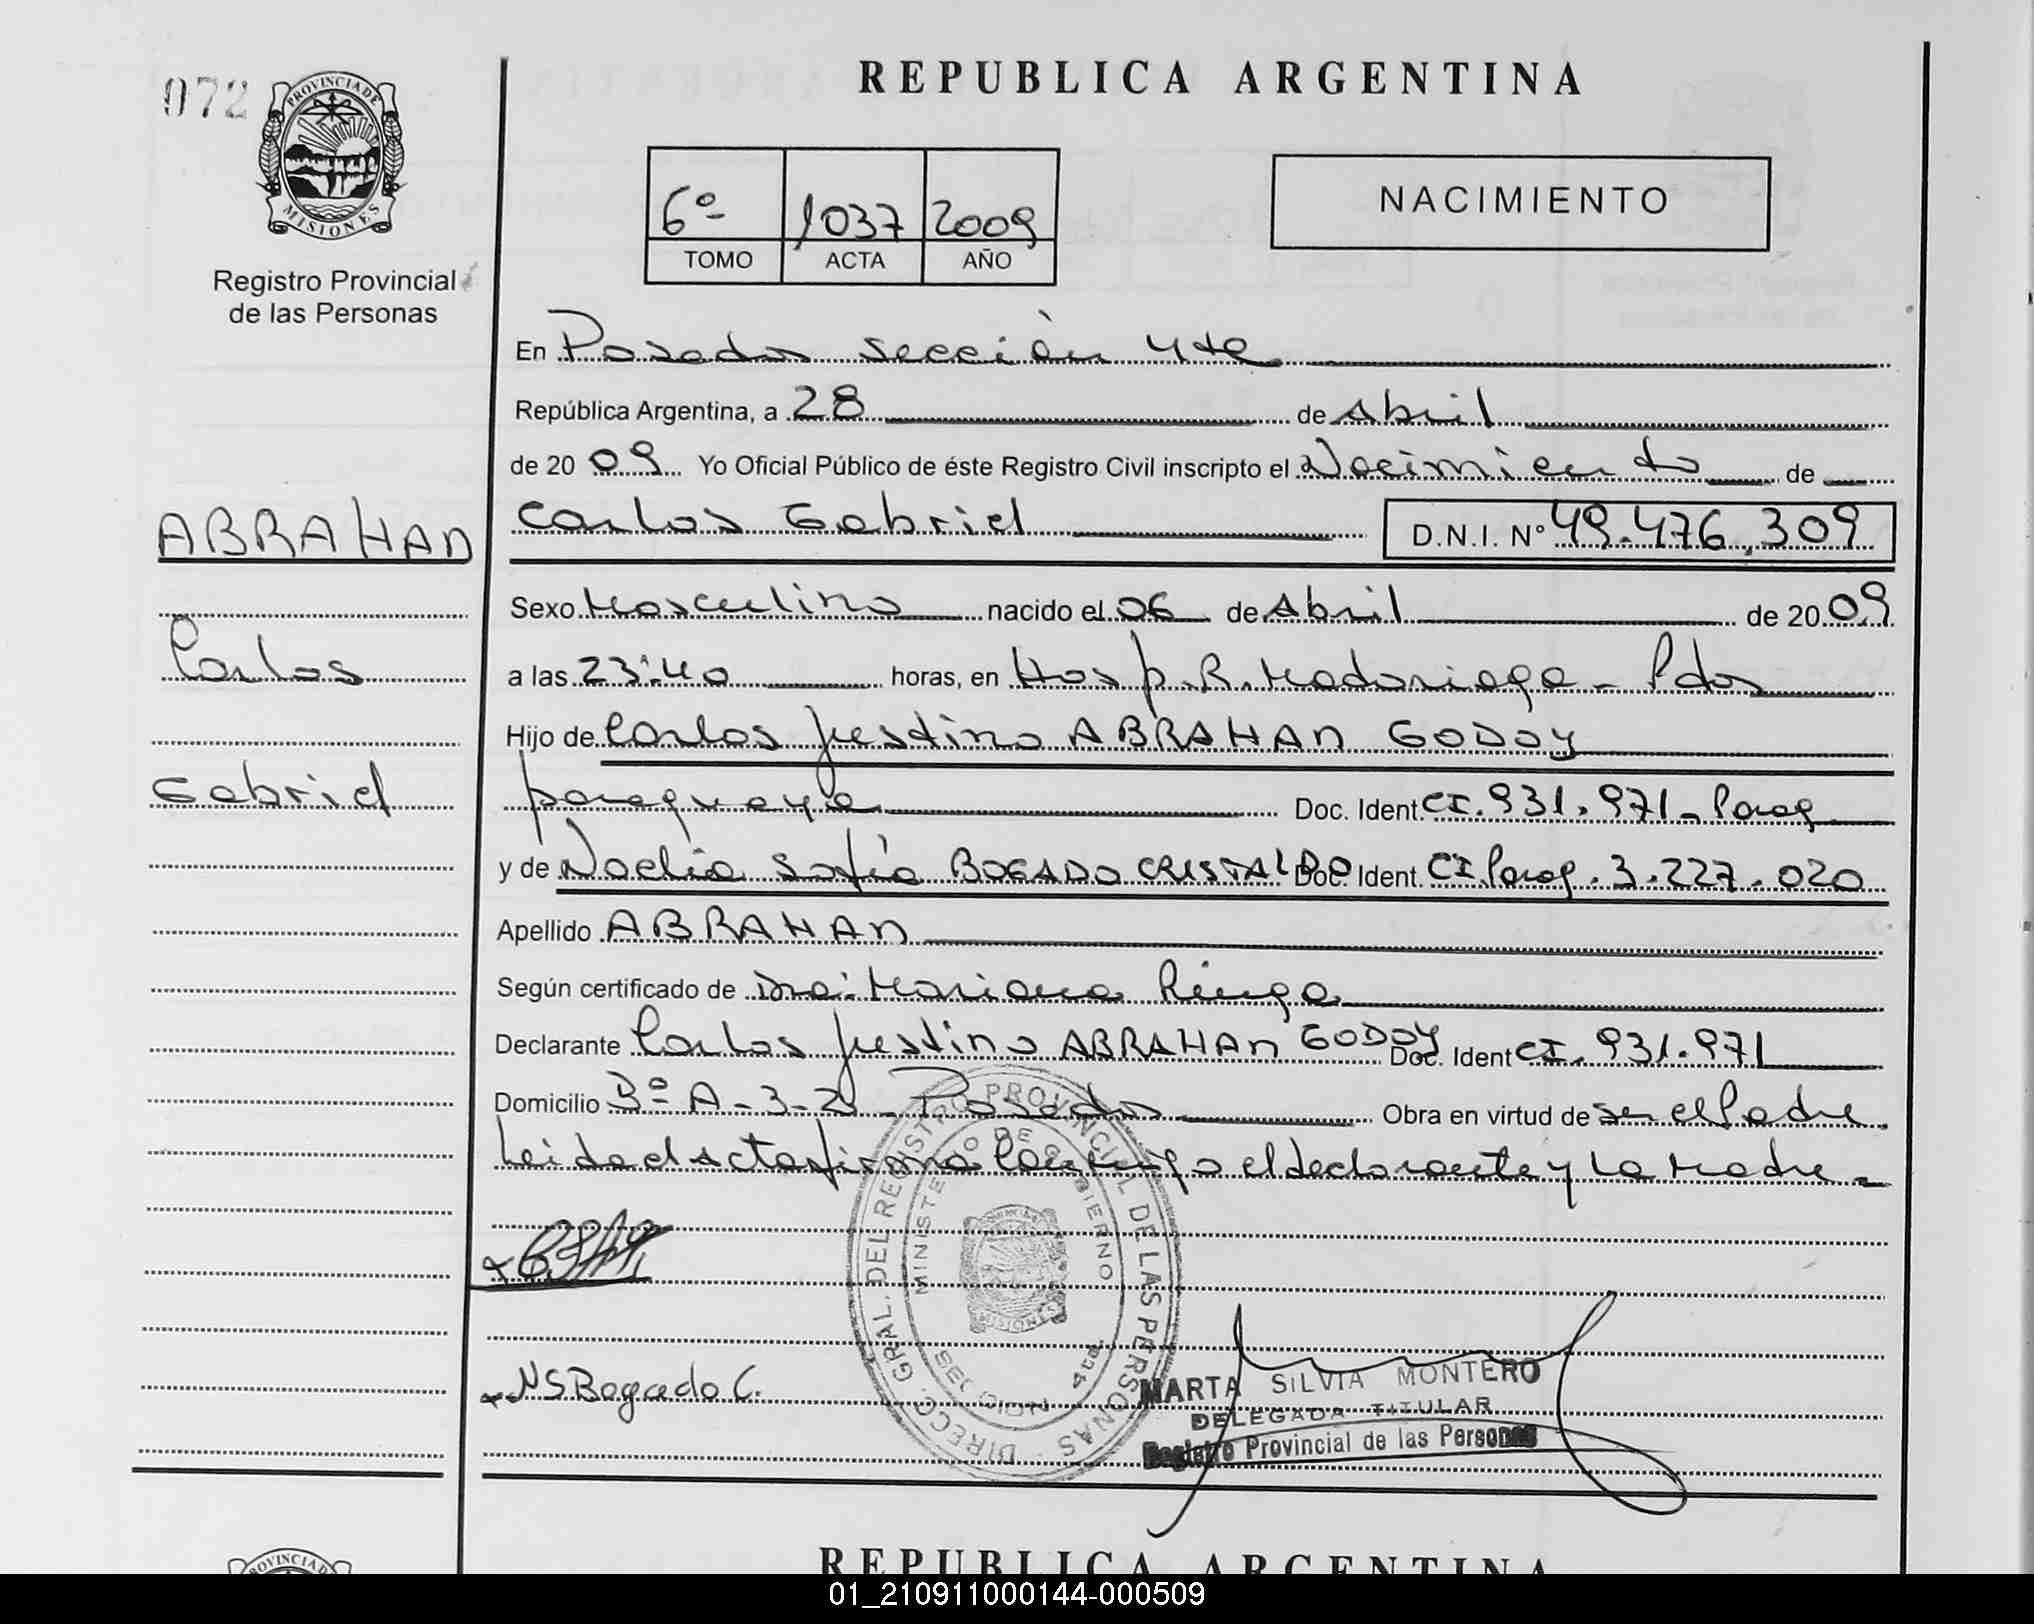 072
PROVINCIA DE
MISIONES
Registro Provincial
de las Personas
REPUBLICA ARGENTINA
6º- 1037 2009
TOMO ACTA AÑO
NACIMIENTO
En Posadas sección 4ta
República Argentina, a 28 de Abril
de 20 09 Yo Oficial Público de éste Registro Civil inscripto el Nacimiento de
ABRAHAN
Carlos Gabriel D.N.I. Nº 49.476.309
Sexo Masculino nacido el 06 de Abril de 20 09
Carlos
a las 23:40 horas, en Hosp. R. Madariaga - Pdas
Hijo de Carlos Justino ABRAHAN GODOY
Gabriel
paraguaya Doc. Ident. CI. 931.971 - Parag
y de Noelia Sofía BOGADO CRISTALDO Doc. Ident. CI Parag. 3.227.020
Apellido ABRAHAN
Según certificado de Dra. Mariana
Declarante Carlos Justino ABRAHAN GODOY Doc. Ident CI. 931.971
Domicilio Bº A-3-2 - Posadas Obra en virtud de ser el Padre
Leida el Acta firma Conmigo el declarante y La Madre -
DIRECC. GRAL. DEL REGISTRO PROVINCIAL DE LAS PERSONAS
MINISTERIO DE GOBIERNO
SECCION 4ta.
MISIONES
NSBogado C.
MARTA SILVIA MONTERO
DELEGADA TITULAR
Registro Provincial de las Personas
REPUBLICA ARGENTINA
01_210911000144-000509